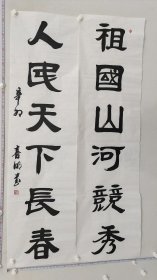 祖國山河競秀
人民天下長春
辛卯